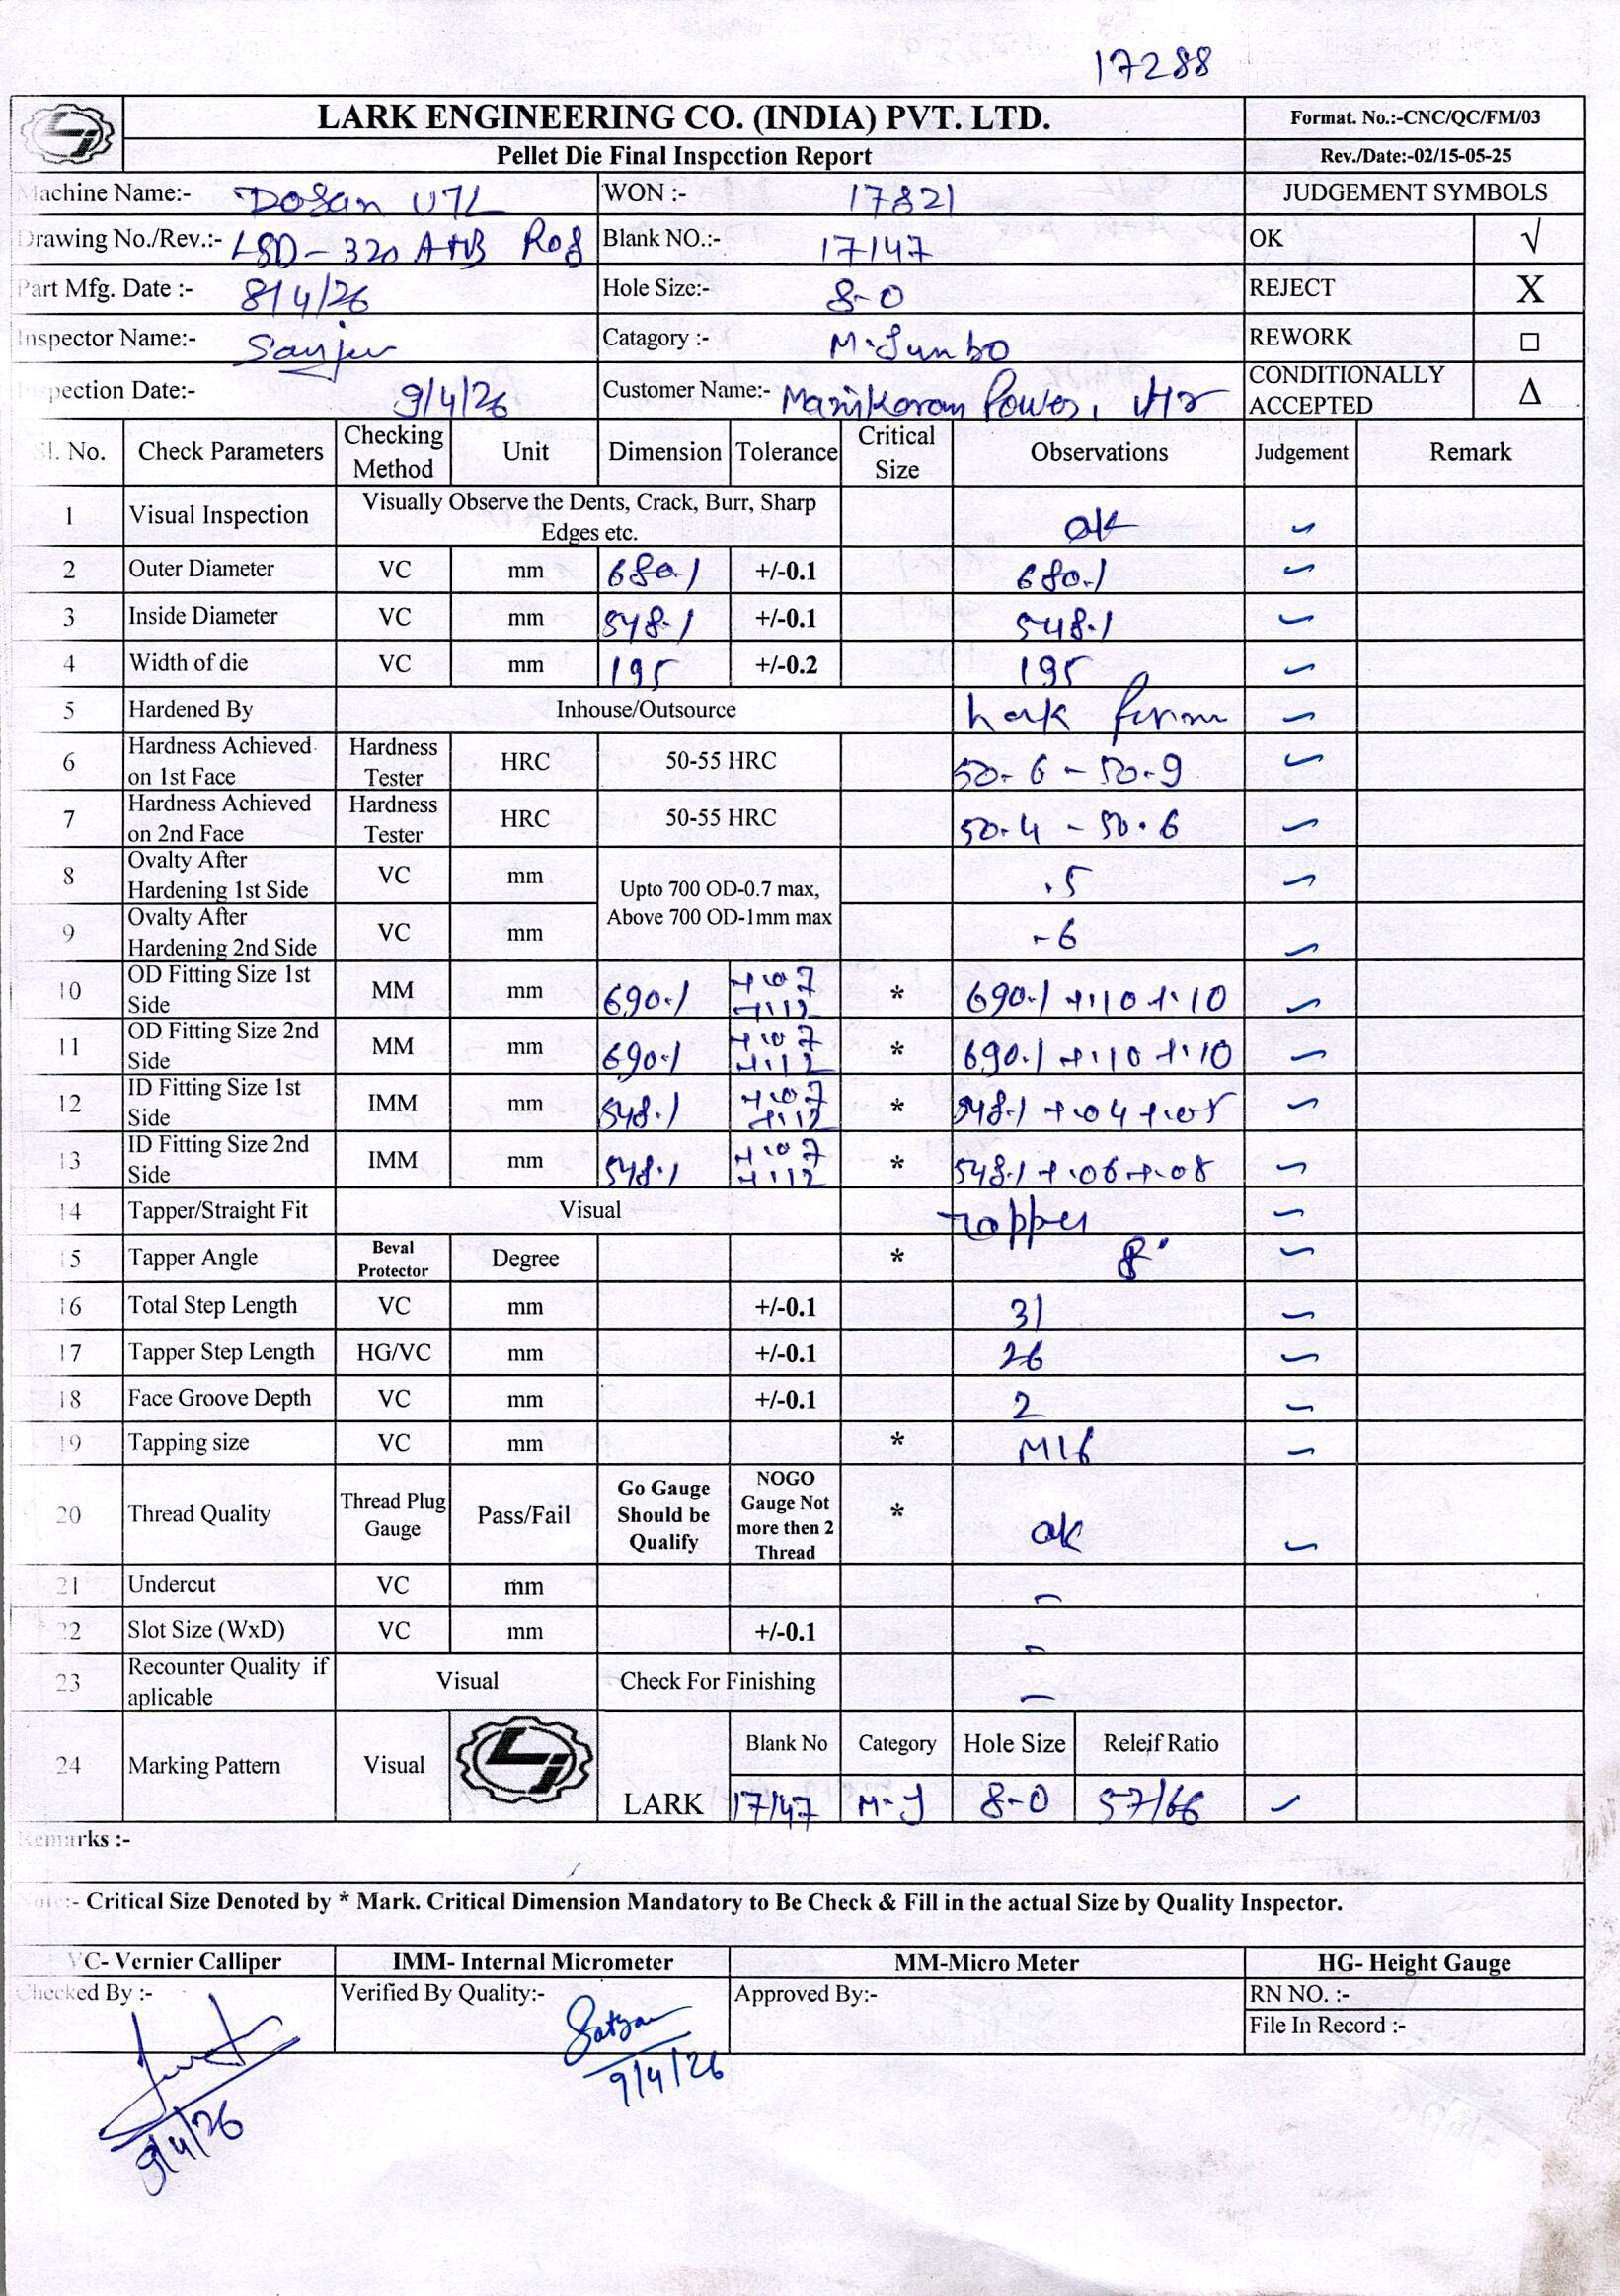 17288
LARK ENGINEERING CO. (INDIA) PVT. LTD.
Format. No.:-CNC/QC/FM/03
Pellet Die Final Inspcction Report
Rev./Date:-02/15-05-25
Machine Name:- Dosan U7L WON :- 17821 JUDGEMENT SYMBOLS
Drawing No./Rev.:- LSD-320 A+B Ro8 Blank NO.:- 17147 OK √
Part Mfg. Date :- 8/4/26 Hole Size:- 8-0 REJECT X
Inspector Name:- Sanjeev Catagory :- M.Jumbo REWORK □
Inspection Date:- 9/4/26 Customer Name:- Manikaran Power, CONDITIONALLY ACCEPTED Δ
Sl. No. Check Parameters Checking Method Unit Dimension Tolerance Critical Size Observations Judgement Remark
1 Visual Inspection Visually Observe the Dents, Crack, Burr, Sharp Edges etc. ok ✓
2 Outer Diameter VC mm 680.1 +/-0.1 680.1 ✓
3 Inside Diameter VC mm 548.1 +/-0.1 548.1 ✓
4 Width of die VC mm 195 +/-0.2 195 ✓
5 Hardened By Inhouse/Outsource ✓
6 Hardness Achieved on 1st Face Hardness Tester HRC 50-55 HRC 50.6 - 50.9 ✓
7 Hardness Achieved on 2nd Face Hardness Tester HRC 50-55 HRC 50.4 - 50.6 ✓
8 Ovalty After Hardening 1st Side VC mm Upto 700 OD-0.7 max, Above 700 OD-1mm max .5 ✓
9 Ovalty After Hardening 2nd Side VC mm .6 ✓
10 OD Fitting Size 1st Side MM mm 690.1 +.07 +.12 * 690.1 +.10 +.10 ✓
11 OD Fitting Size 2nd Side MM mm 690.1 +.07 +.12 * 690.1 +.10 +.10 ✓
12 ID Fitting Size 1st Side IMM mm 548.1 +.07 +.12 * 548.1 +.04 +.05 ✓
13 ID Fitting Size 2nd Side IMM mm 548.1 +.07 +.12 * 548.1 +.06 +.08 ✓
14 Tapper/Straight Fit Visual Tapper ✓
15 Tapper Angle Beval Protector Degree * 8° ✓
16 Total Step Length VC mm +/-0.1 31 ✓
17 Tapper Step Length HG/VC mm +/-0.1 26 ✓
18 Face Groove Depth VC mm +/-0.1 2 ✓
19 Tapping size VC mm * M16 ✓
20 Thread Quality Thread Plug Gauge Pass/Fail Go Gauge Should be Qualify NOGO Gauge Not more then 2 Thread * ok ✓
21 Undercut VC mm –
22 Slot Size (WxD) VC mm +/-0.1 –
23 Recounter Quality if aplicable Visual Check For Finishing –
24 Marking Pattern Visual LARK Blank No Category Hole Size Releif Ratio
17147 M-J 8-0 57/66 ✓
Remarks :-
Note:- Critical Size Denoted by * Mark. Critical Dimension Mandatory to Be Check & Fill in the actual Size by Quality Inspector.
VC- Vernier Calliper IMM- Internal Micrometer MM-Micro Meter HG- Height Gauge
Checked By :- Verified By Quality:- Satyam Approved By:- RN NO. :-
File In Record :-
9/4/26
9/4/26